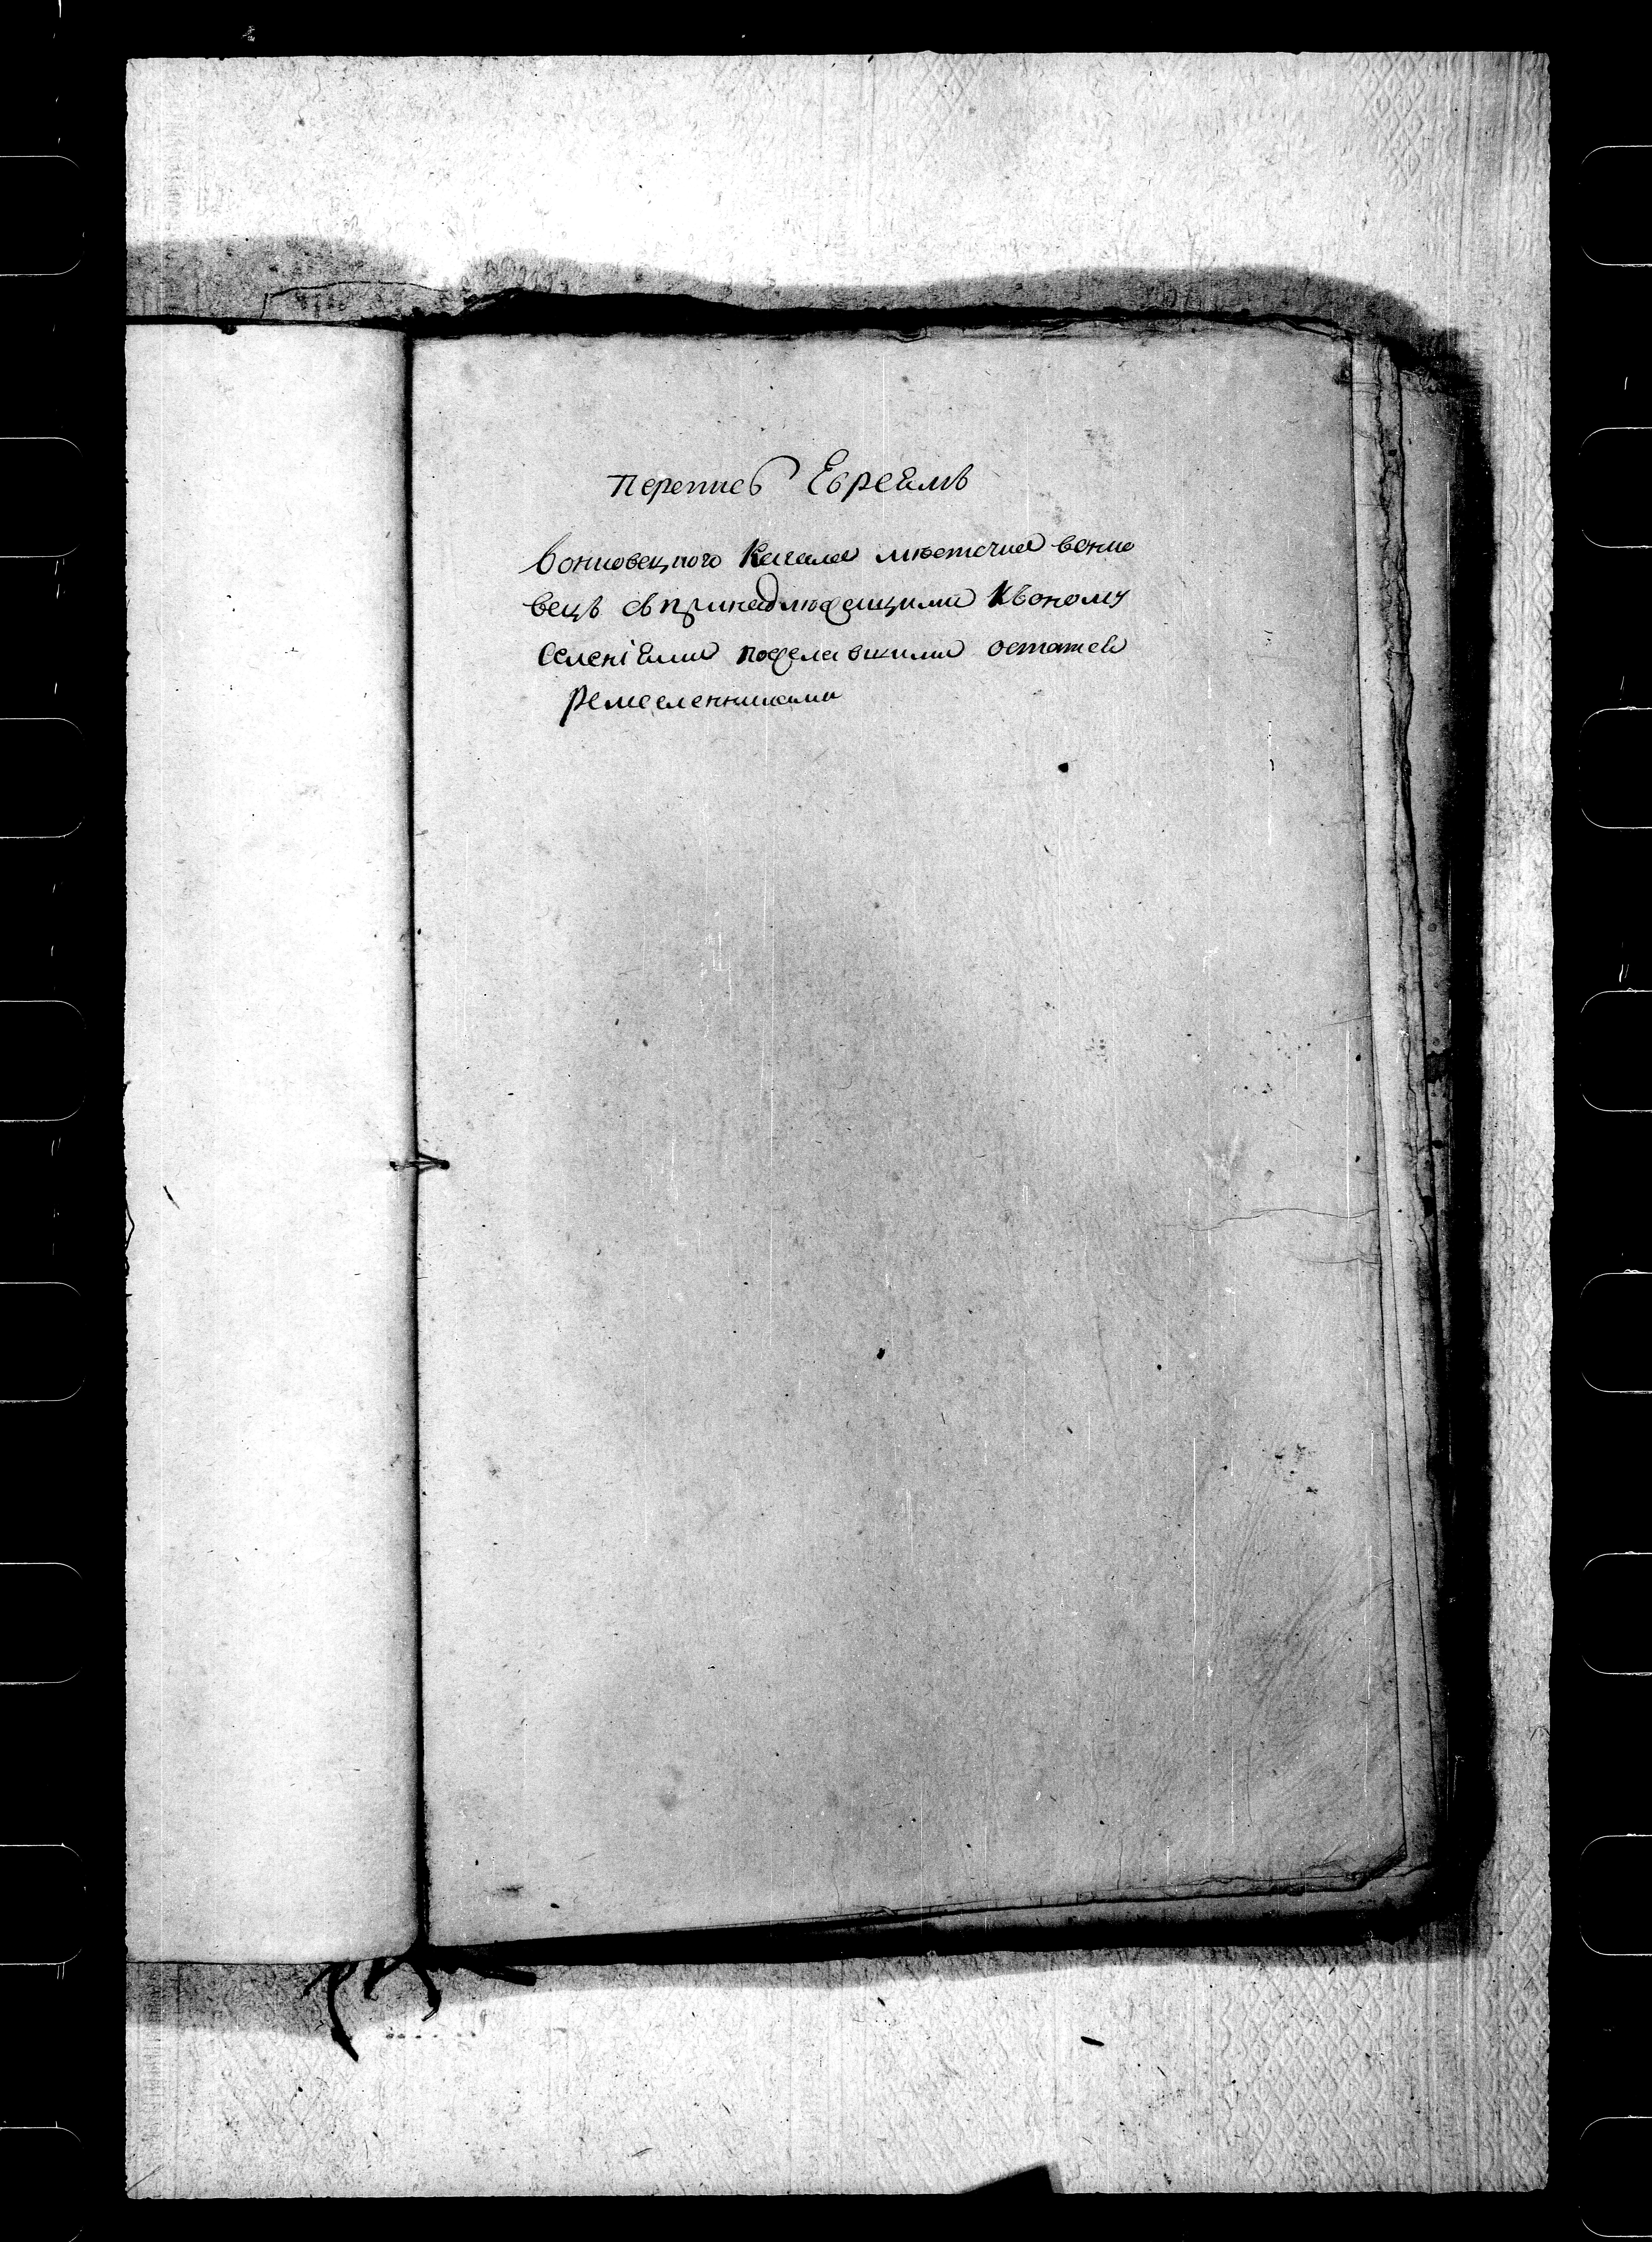 Перепись Евреямъ
вонковецкого Кагала мѣстечка вонко
вецъ съ принадлѣжащими къ оному
селеніями пожелавшими остатся
ремесленниками